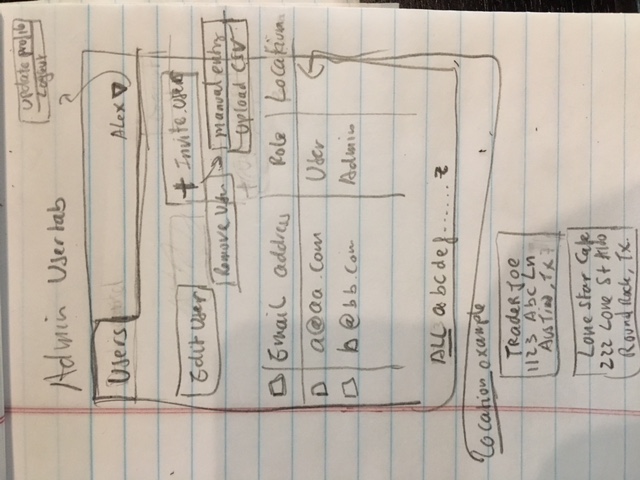 Update profile
Logout
Admin User tab
Users
Alex
Edit User
+ Invite user
Remove User
manual entry
Upload CSV
Email address Role Location
a@aa.com User
b@bb.com Admin
ALL a b c d e f ...... z
Location example
Trader Joe
1123 Abc Ln
Austin, Tx
Lone Star Cafe
222 Lone St
Round Rock, Tx.